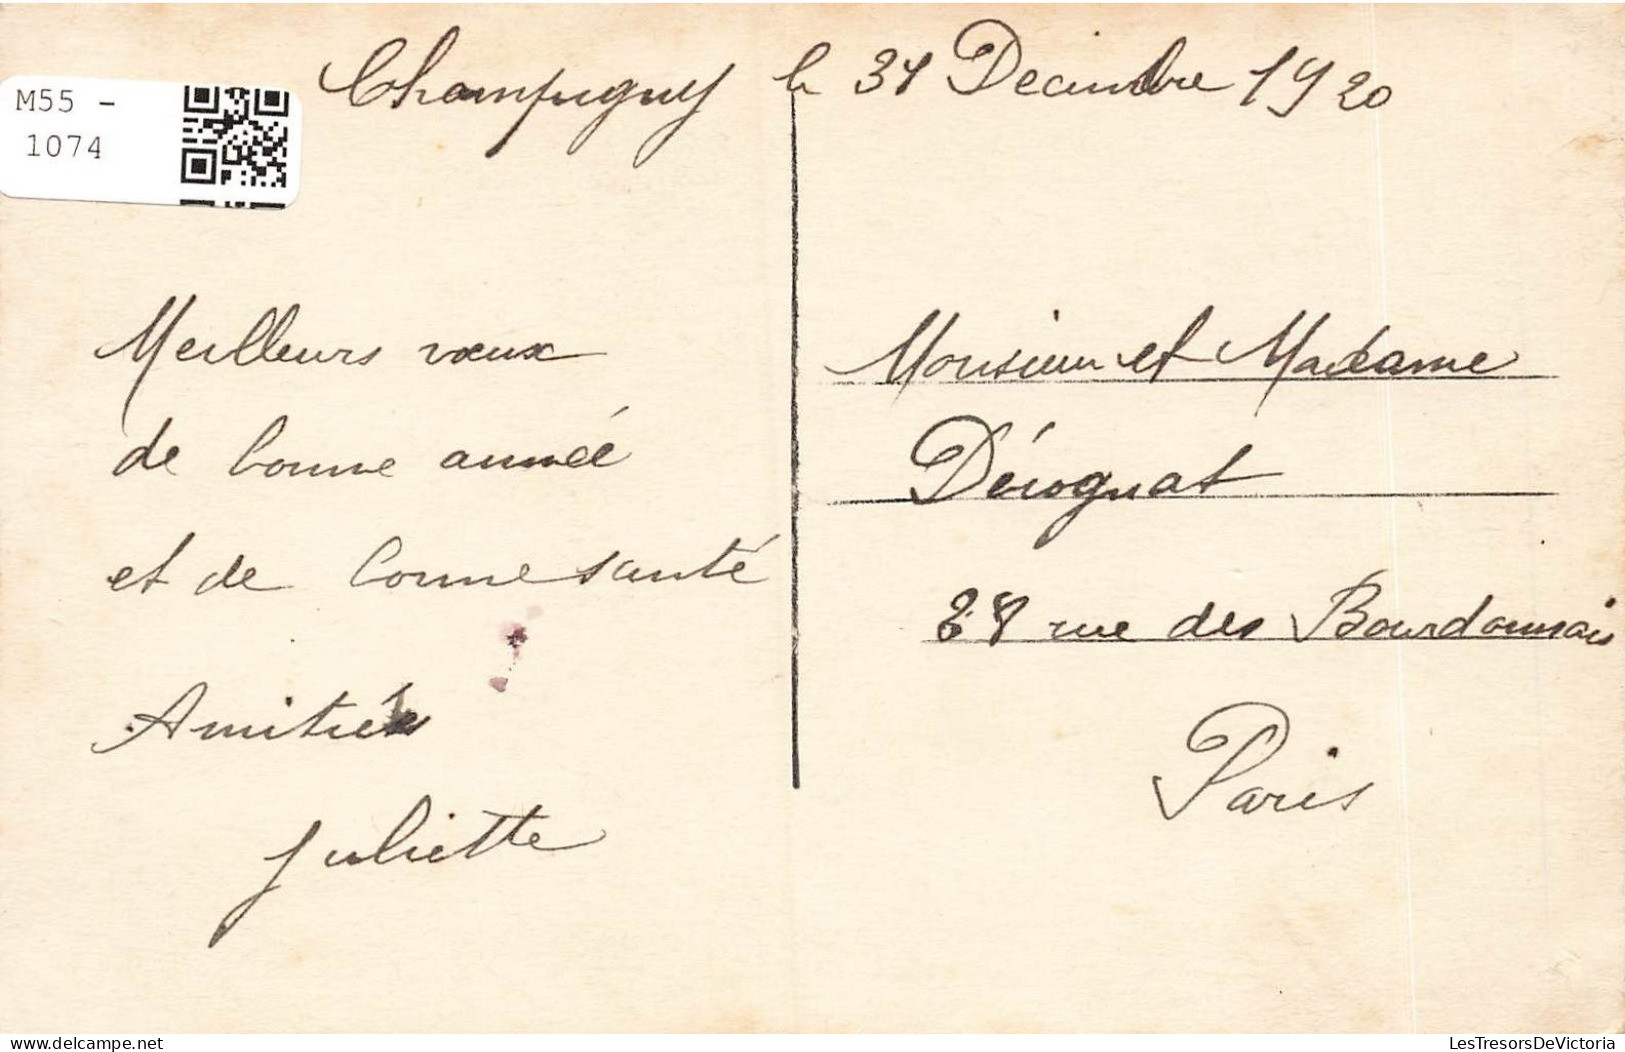 M55 -
1074
Champigny le 31 Décembre 1920
Meilleurs vœux
de bonne année
et de bonne santé
Amitiés
Juliette
Monsieur et Madame
Dérognat
28 rue des Bourdonnais
Paris
delcampe.net
LesTresorsDeVictoria